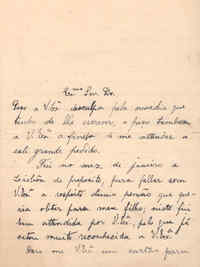 Exmo Snr Dr.
Peço a V.Exª desculpa pela ousadia que
tenho de lhe escrever, e peço tambem
a V.Exª a fineza de me attender a
este grande pedido.
Fui no mez de janeiro a
Lisbôa de proposito, para fallar com
V.Exª a respeito duma pensão que que-
ria obter para meu filho, neste fui
bem attendida por V.Exª, pelo que já
estou muito reconhecida a V.Exª
Deu me V.Exª um cartão para